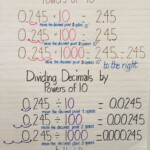 Powers of 10
0.245 × 10 = 2.45
move the decimal point 1 place
0.245 × 100 = 24.5
move the decimal point 2 places
0.245 × 1000 = 245 = 245
move the decimal point 3 places
to the right
Dividing Decimals by
Powers of 10
0.245 ÷ 10 = 0.0245
move the decimal point 1 place
0.245 ÷ 100 = 0.00245
move the decimal point 2 places
0.245 ÷ 1000 = 0.000245
move the decimal point 3 places